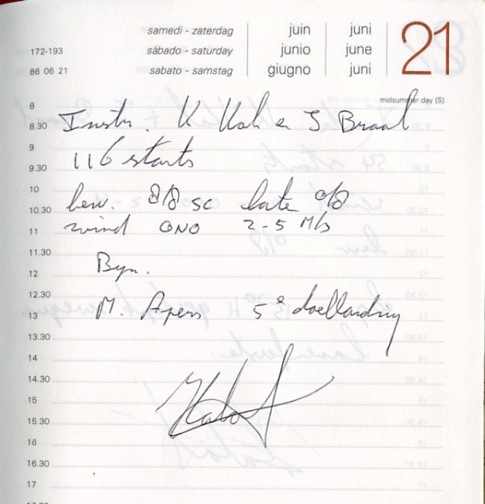 samedi - zaterdag juin juni 21
172-193 sábado - saturday junio june
86 06 21 sabato - samstag giugno juni
midsummer day (S)
8
8.30 Instr. K Kok en J Braal
9
9.30 116 starts
10
10.30 bew. 8/8 sc later 0/8
11 wind ONO 2-5 M/s
11.30
12 Byz.
12.30
13 M. Apers 5e doellanding
13.30
14
14.30
15
15.30
16
16.30
17